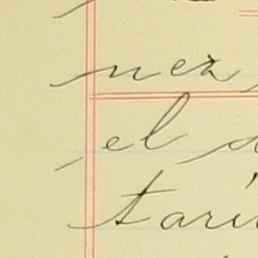 nez
el
tari